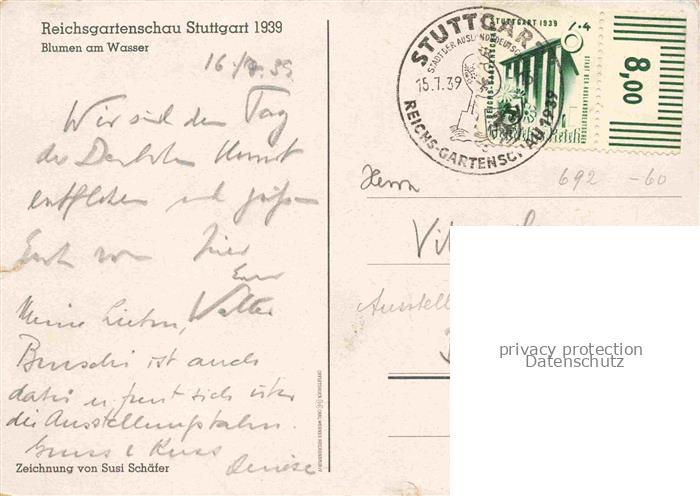 Reichsgartenschau Stuttgart 1939
Blumen am Wasser
Wir sind dem Tag
der Deutschen Kunst
entflohen und grüßen
Euch von hier
Euer
Walter
Meine Lieben,
Buschi ist auch
dabei u. freut sich über
die Ausstellungsbahn.
Gruss & Kuss
Denise
Zeichnung von Susi Schäfer
STUTTGART
STADT DER AUSLANDSDEUTSCHEN
15.7.39
REICHS-GARTENSCHAU 1939
STUTTGART 1939
8,00
Herrn
692 -60
Ausstell
privacy protection
Datenschutz